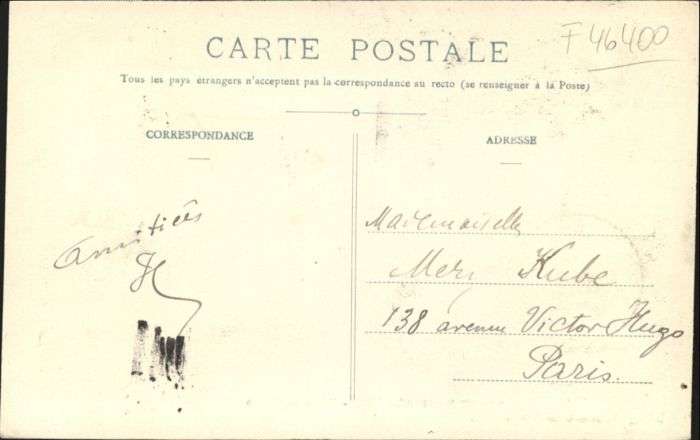 F 46400
CARTE POSTALE
Tous les pays étrangers n'acceptent pas la correspondance au recto (se renseigner à la Poste)
CORRESPONDANCE
Amitiés
ADRESSE
Mademoiselle
Kube
138 avenue Victor Hugo
Paris.